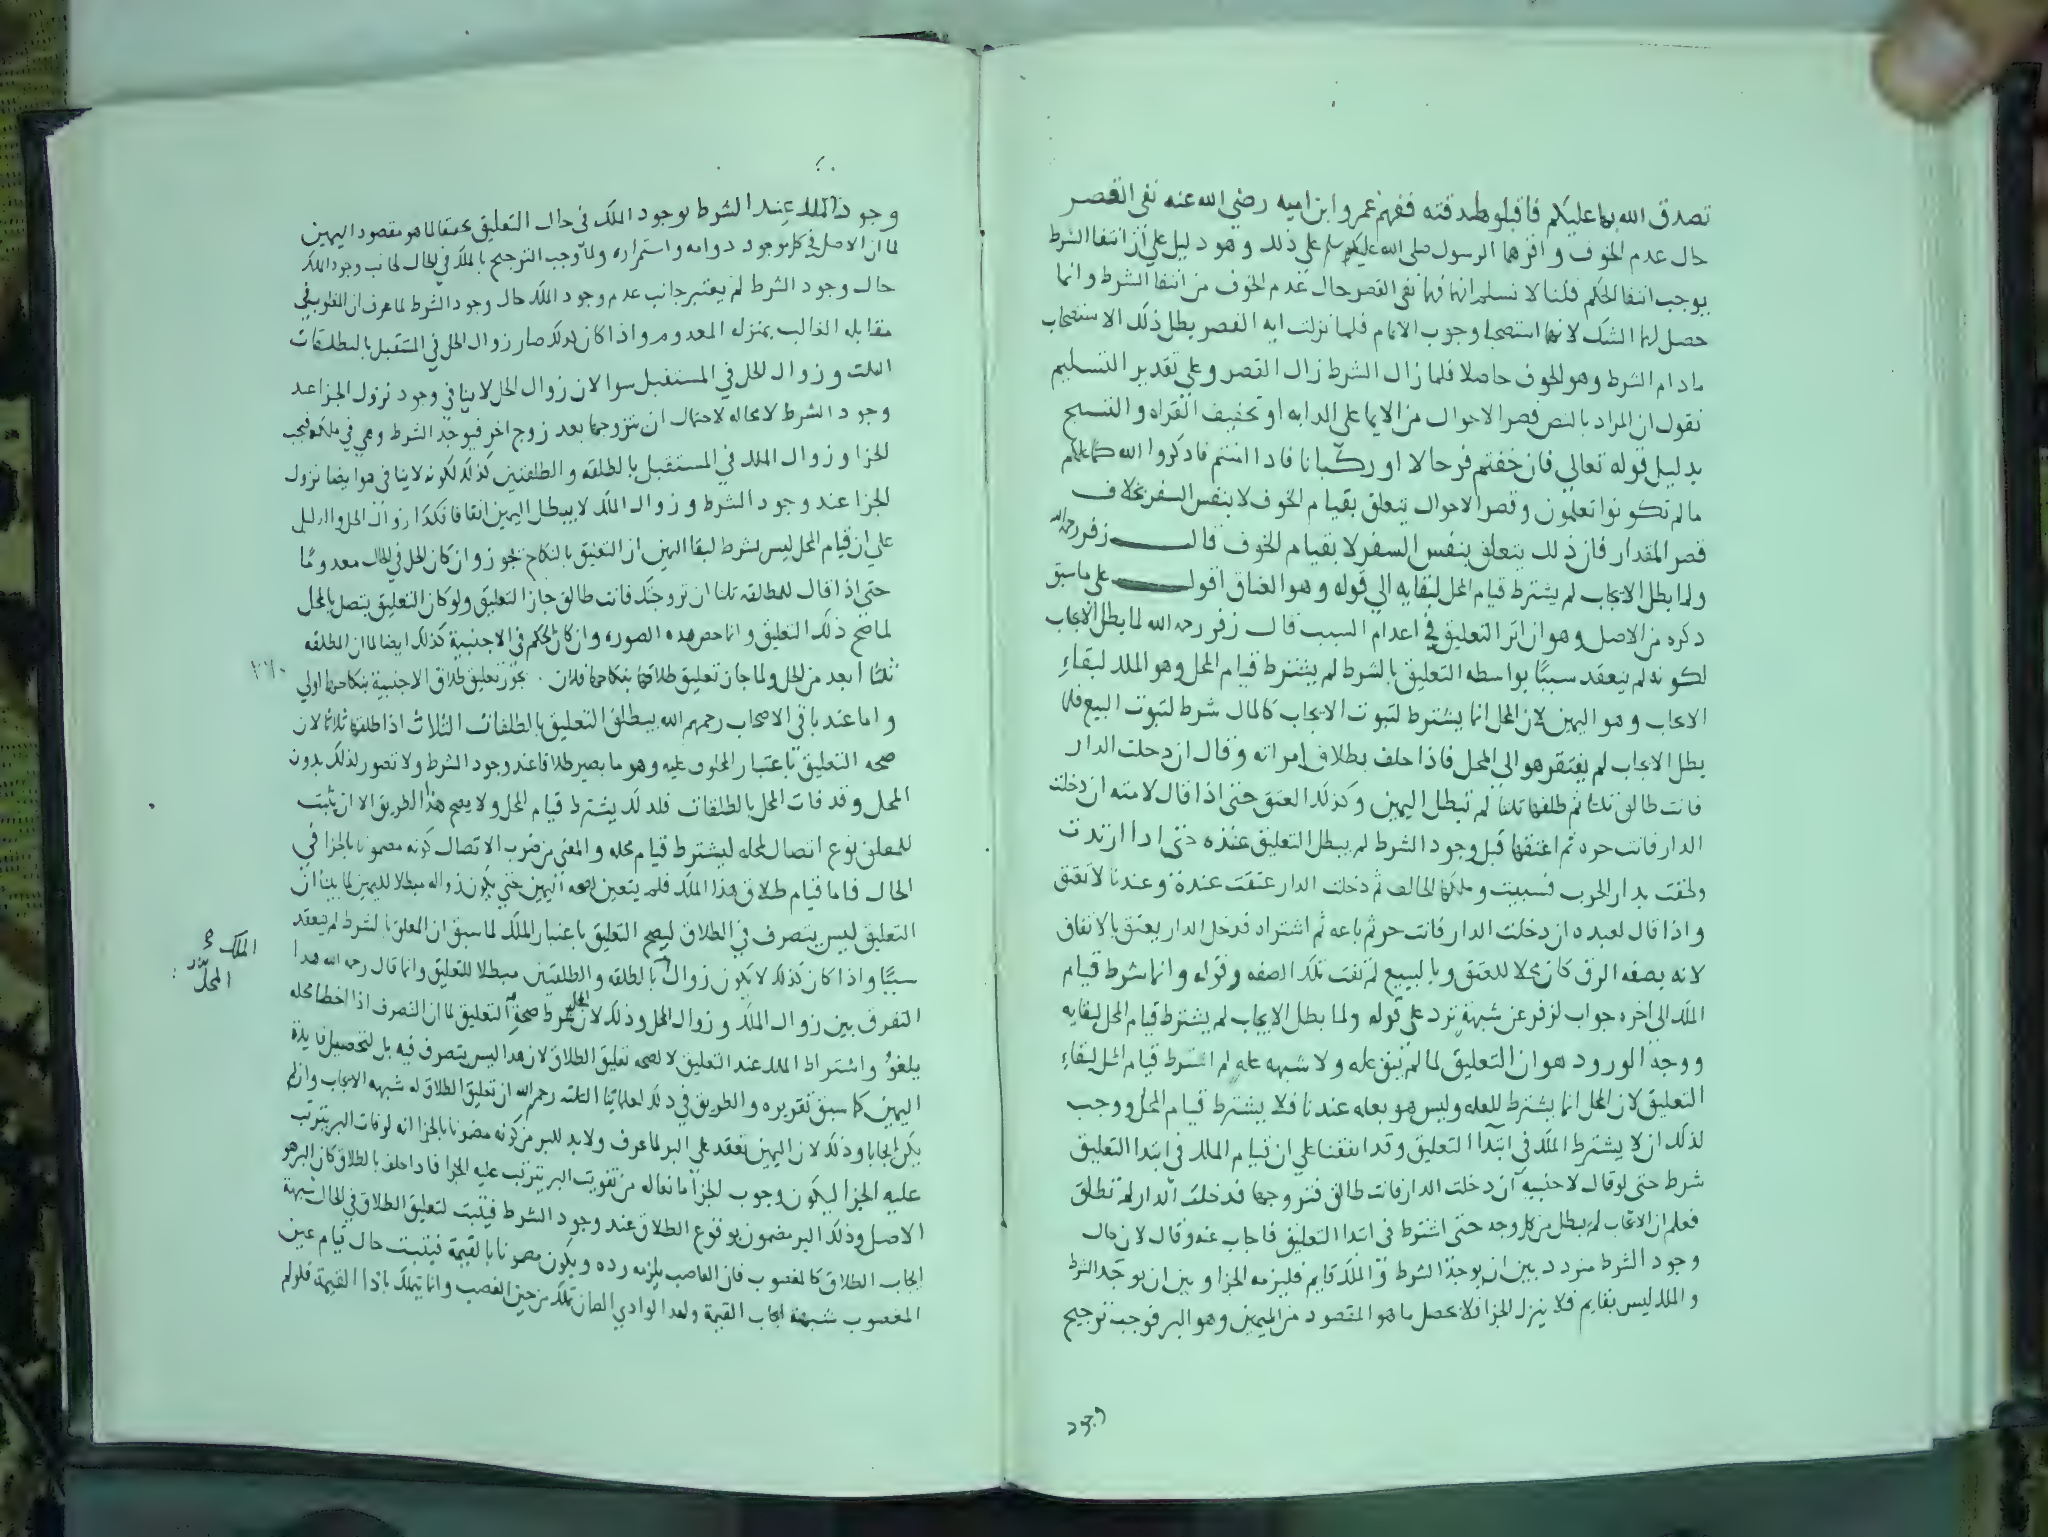 تصدق الله بها عليكم فاقبلوا صدقته ففهم عمر وابن اميه رضي الله عنه نفى القصر
حال عدم الخوف واقرهما الرسول صلى الله عليه وسلم على ذلك وهو دليل على ان انتفا الشرط
يوجب انتفا الحكم قلنا لا نسلم انهما فهما نفى القصر حال عدم الخوف من انتفا الشرط وانما
حصل لهما الشك لانهما استصحبا وجوب الاتمام فلما نزلت ايه القصر بطل ذلك الاستصحاب
مادام الشرط وهو الخوف حاصلا فلما زال الشرط زال القصر وعلى تقدير التسليم
نقول ان المراد بالنص قصر الاحوال من الايما على الدابه او تخفيف القراه والتسبيح
بدليل قوله تعالى فان خفتم فرجالا او ركبانا فاذا امنتم فاذكروا الله كما علمكم
مالم تكونوا تعلمون وقصر الاحوال يتعلق بقيام الخوف لا بنفس السفر بخلاف
قصر المقدار فان ذلك يتعلق بنفس السفر لا بقيام الخوف قال زفر رحمه الله
ولما بطل الايجاب لم يشترط قيام المحل لبقايه الى قوله وهو العتاق اقول على ما سبق
ذكره من الاصل وهو ان اثر التعليق في اعدام السبب قال زفر رحمه الله لما بطل الايجاب
لكونه لم ينعقد سببًا بواسطه التعليق بالشرط لم يشترط قيام المحل وهو الملك لبقاء
الايجاب وهو اليمين لان المحل انما يشترط لثبوت الايجاب كالمال شرط لثبوت البيع فلما
بطل الايجاب لم يفتقر هو الى المحل فاذا حلف بطلاق امراته وقال ان دخلت الدار
فانت طالق ثلثا ثم طلقها ثلثا لم تبطل اليمين وكذلك العتق حتى اذا قال لامته ان دخلت
الدار فانت حره ثم اعتقها قبل وجود الشرط لم يبطل التعليق عنده حتى اذا ارتدت
ولحقت بدار الحرب فسبيت وملكها الحالف ثم دخلت الدار عتقت عنده وعندنا لا تعتق
واذا قال لعبده ان دخلت الدار فانت حر ثم باعه ثم اشتراه فدخل الدار يعتق بالاتفاق
لانه بصفه الرق كان محلا للعتق وبالبيع لم تفت تلك الصفه وقوله وانما شرط قيام
الملك الى اخره جواب لزفر عن شبهة ترد على قوله ولما بطل الايجاب لم يشترط قيام المحل لبقايه
ووجه الورود هو ان التعليق لما لم يبق عله ولا شبهه عله لم اشترط قيام المحل لبقاء
التعليق لان المحل انما يشترط للعله وليس هو بعله عندنا فلا يشترط قيام المحل ووجب
لذلك ان لا يشترط الملك في ابتدا التعليق وقد اتفقنا على ان قيام الملك في ابتدا التعليق
شرط حتى لو قال لاجنبيه ان دخلت الدار فانت طالق فتزوجها فدخلت الدار لم تطلق
فعلم ان الايجاب لم يبطل من كل وجه حتى اشترط في ابتدا التعليق فاجاب عنه وقال لان حال
وجود الشرط متردد بين ان يوجد الشرط والملك قايم فيلزمه الجزا وبين ان يوجد الشرط
والملك ليس بقايم فلا ينزل الجزا فلا يحصل ما هو المقصود من اليمين وهو البر فوجب ترجيح
وجود
وجود الملك عند الشرط بوجود الملك في حال التعليق تحقيقا لما هو مقصود اليمين
لما ان الاصل في كل موجود دوامه واستمراره ولما وجب الترجيح بالملك في الحال لجانب وجود الملك
حال وجود الشرط لم يعتبر جانب عدم وجود الملك حال وجود الشرط لما عرف ان المغلوب في
مقابله الغالب بمنزله المعدوم واذا كان كذلك صار زوال الحل في المستقبل بالطلقات
الثلث وزوال الحل في المستقبل سوا لان زوال الحل لا ينافي وجود نزول الجزا عند
وجود الشرط لا محاله لاحتمال ان يتزوجها بعد زوج اخر فيوجد الشرط وهي في ملكه فيجب
الجزا وزوال الملك في المستقبل بالطلقه والطلقتين كذلك لكونه لا ينافي هو ايضا نزول
الجزا عند وجود الشرط وزوال الملك لا يبطل اليمين اتفاقا فكذا زوال الحل والدليل
على ان قيام المحل ليس بشرط لبقا اليمين ان التعليق بالنكاح يجوز وان كان الحل في الحال معدومًا
حتى اذا قال للمطلقه ثلثا ان تزوجتك فانت طالق جاز التعليق ولو كان التعليق يتصل بالمحل
لما صح ذلك التعليق وانما خص هذه الصوره وان كان الحكم في الاجنبية كذلك ايضا لما ان المطلقه
ثلثًا ابعد من الحل ولما جاز تعليق طلاقها بنكاحها فلان يجوز تعليق طلاق الاجنبية بنكاحها اولى
واما عند باقي الاصحاب رحمهم الله يبطل التعليق بالطلقات الثلاث اذا طلقها ثلاثا لان
صحه التعليق باعتبار المحلوف عليه وهو ما يصير طلاقا عند وجود الشرط ولا تصور لذلك بدون
المحل وقد فات المحل بالطلقات فلذلك يشترط قيام المحل ولا يصح هذا الطريق الا ان يثبت
للمعلق نوع اتصال لمحله ليشترط قيام محله والمعنى من ضرب الاتصال كونه مضمونا بالجزا في
الحال فاما قيام طلاق هذا الملك فلم يتعين لهذه اليمين حتى يكون زواله مبطلا لليمين لما بينا ان
التعليق ليس بتصرف في الطلاق ليصح التعليق باعتبار الملك لما سبق ان المعلق بالشرط لم ينعقد
سببًا واذا كان كذلك لا يكون زوال بالطلقه والطلقتين مبطلا للتعليق وانما قال رحمه الله هذا
التفرق بين زوال الملك وزوال المحل وذلك لان المحل شرط صحة التعليق لما ان التصرف اذا اخطا محله
يلغو واشتراط الملك عند التعليق لا لصحه تعليق الطلاق لان هذا ليس بتصرف فيه بل لتحصيل فايدة
اليمين كما سبق تقريره والطريق في ذلك لعلمائنا الثلثه رحمهم الله ان تعليق الطلاق له شبهه الايجاب وان لم
يكن ايجابا وذلك لان اليمين تعقد على البر لما عرف ولا بد للبر من كونه مضمونا بالجزا انه لو فات البر يترتب
عليه الجزا ليكون وجوب الجزا مانعا له من تفويت البر يترتب عليه الجزا فاذا حلف بالطلاق كان البر هو
الاصل وذلك البر مضمون بوقوع الطلاق عند وجود الشرط فيثبت لتعليق الطلاق في الحال شبهة
ايجاب الطلاق كالمغصوب فان الغاصب يلزمه رده ويكون مضمونا بالقيمة فيثبت حال قيام عين
المغصوب شبهة ايجاب القيمة ولهذا لو ادى الضمان تملك من حين الغصب وانما يتملك باذا القيمة فلو لم
الملك
المحل